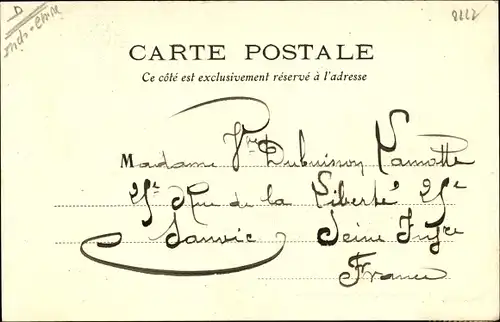 D
Indo-Chine
2227
CARTE POSTALE
Ce côté est exclusivement réservé à l'adresse
Madame Vve Dubuisson Lamotte
25e Rue de la Liberté 25e
Sanvic Seine Infre
France